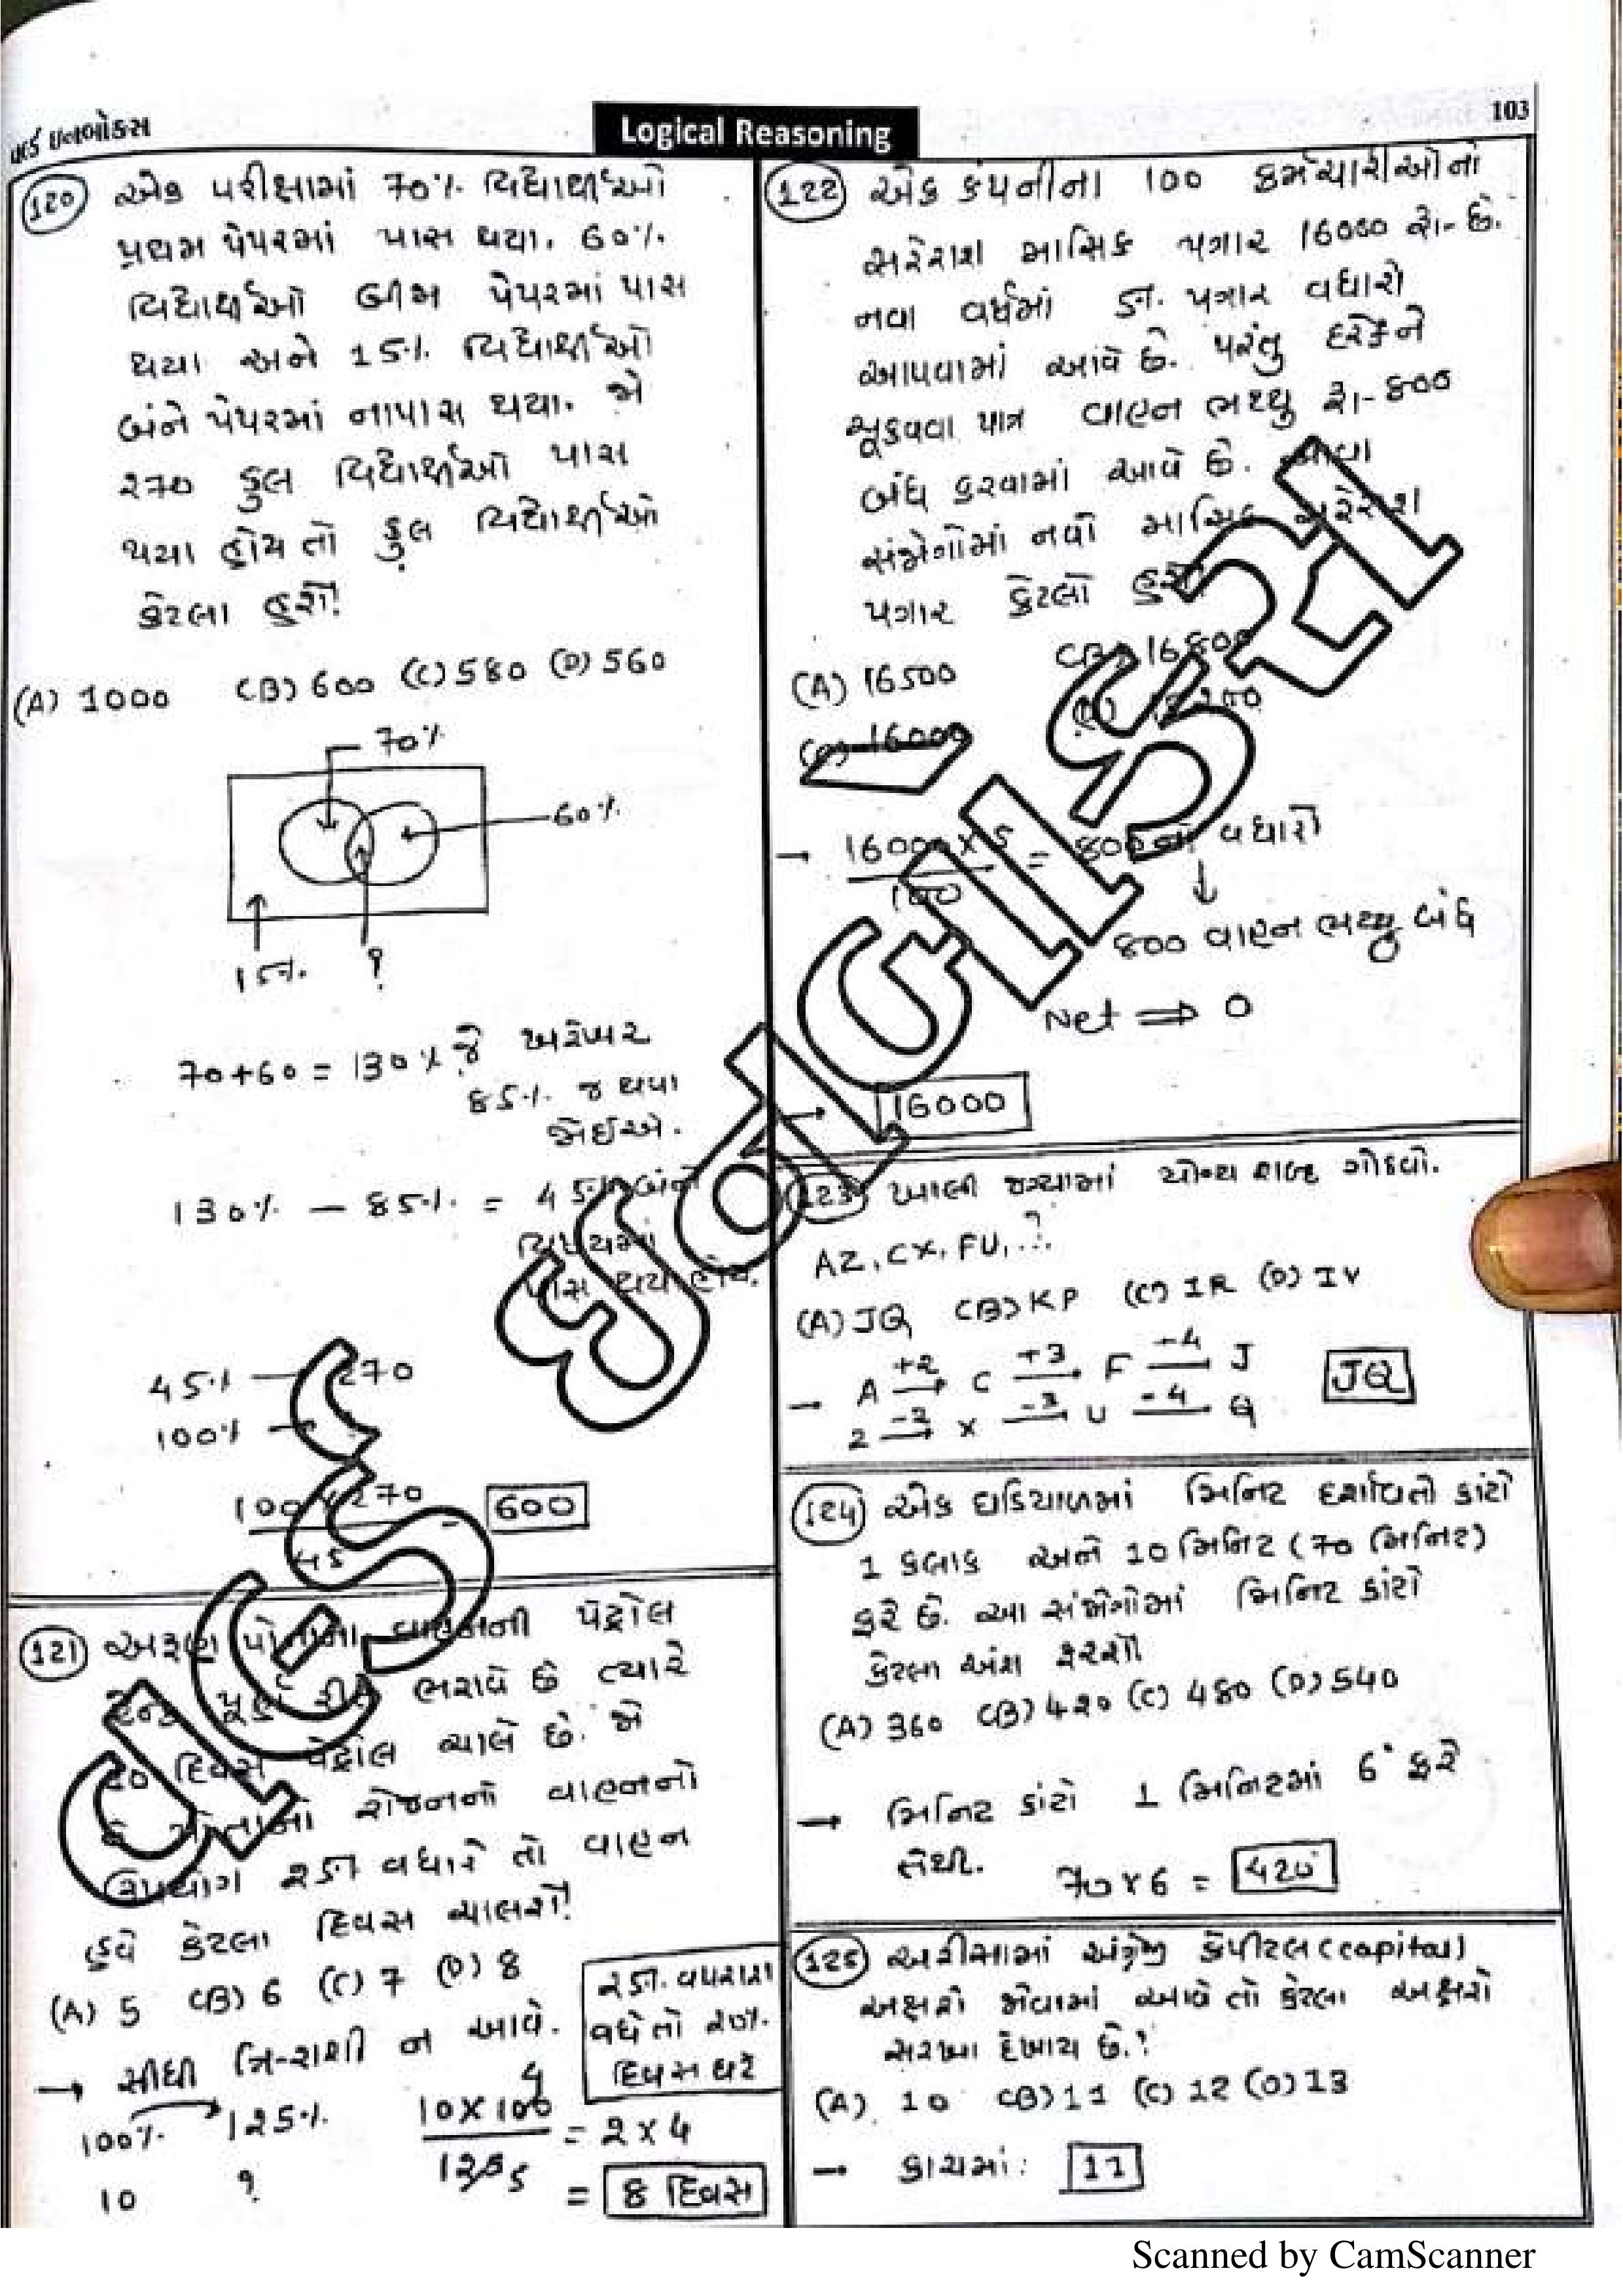 વર્લ્ડ ઇનબોક્સ
Logical Reasoning
103
120 એક પરીક્ષામાં 70% વિદ્યાર્થીઓ
પ્રથમ પેપરમાં પાસ થયા. 60%
વિદ્યાર્થીઓ બીજા પેપરમાં પાસ
થયા અને 15% વિદ્યાર્થીઓ
બંને પેપરમાં નાપાસ થયા. જો
270 કુલ વિદ્યાર્થીઓ પાસ
થયા હોય તો કુલ વિદ્યાર્થીઓ
કેટલા હશે?
(A) 1000 (B) 600 (C) 580 (D) 560
70%
60%
15% ?
70+60 = 130% જે ખરેખર
85% જ થવા
જોઈએ.
130% - 85% = 45% બંને
વિષયમાં
પાસ થયા હોય.
45% 270
100%
100 × 270 = 600
45
121 અરૂણ પોતાના વાહનની પેટ્રોલ
ભરાવે છે ત્યારે
10 દિવસ પેટ્રોલ ચાલે છે. જો
તે પોતાનો રોજનનો વાહનનો
ઉપયોગ 25% વધારે તો વાહન
હવે કેટલા દિવસ ચાલશે?
(A) 5 (B) 6 (C) 7 (D) 8
→ સીધી ત્રિ-રાશી ન આવે.
25% વપરાશ
વધે તો 20%
દિવસ ઘટે
100% 125%
10 ?
4
10 × 100 = 2 × 4
125 5
= 8 દિવસ
122 એક કંપનીના 100 કર્મચારીઓનો
સરેરાશ માસિક પગાર 16000 રૂ- છે.
નવા વર્ષમાં 5% પગાર વધારો
આપવામાં આવે છે. પરંતુ દરેકને
ચૂકવવા પાત્ર વાહન ભથ્થુ રૂ- 800
બંધ કરવામાં આવે છે. આવા
સંજોગોમાં નવો માસિક સરેરાશ
પગાર કેટલો હશે
(A) 16500 (B) 16800
(C) 16000
→ 16000 × 5 = 800 નો વધારો
100
↓
800 વાહન ભથ્થુ બંધ
Net ⇒ 0
→ 16000
123 ખાલી જગ્યામાં યોગ્ય શબ્દ ગોઠવો.
AZ, CX, FU, ..?
(A) JQ (B) KP (C) IR (D) IV
→ A +2 C +3 F +4 J
Z -2 X -3 U -4 Q
JQ
124 એક ઘડિયાળમાં મિનિટ દર્શાવતો કાંટો
1 કલાક અને 10 મિનિટ (70 મિનિટ)
ફરે છે. આ સંજોગોમાં મિનિટ કાંટો
કેટલા અંશ ફરશે
(A) 360 (B) 420 (C) 480 (D) 540
→ મિનિટ કાંટો 1 મિનિટમાં 6° ફરે
તેથી. 70 × 6 = 420°
125 અરીસામાં અંગ્રેજી કેપીટલ (capital)
અક્ષરો જોવામાં આવે તો કેટલા અક્ષરો
સરખા દેખાય છે.?
(A) 10 (B) 11 (C) 12 (D) 13
→ કાચમાં: 11
Scanned by CamScanner